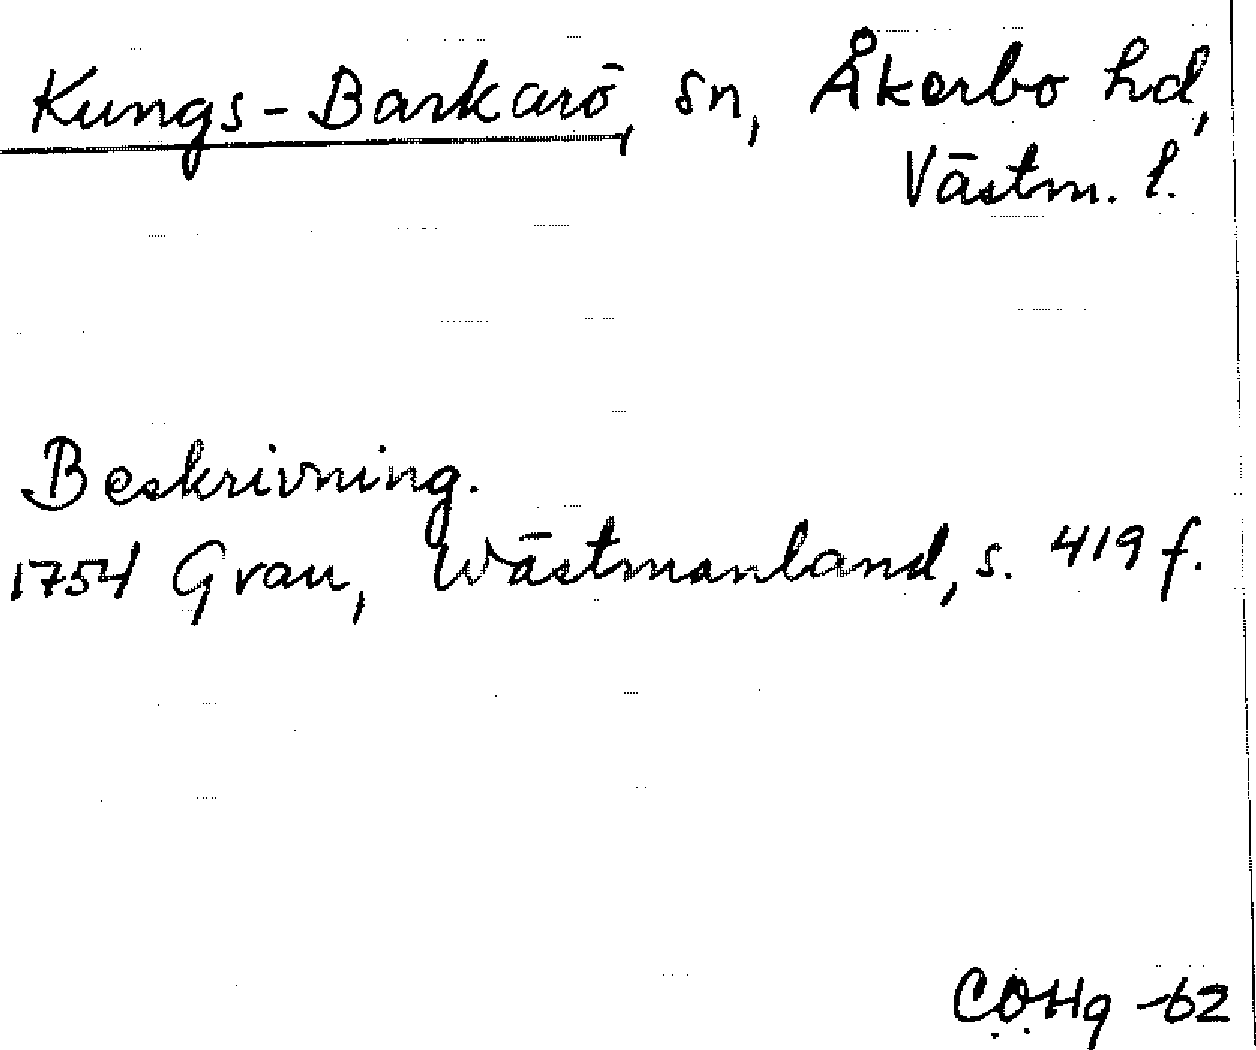 Kungs-Barkarö, sn, Åkerbo hd,
Västm. l.
Beskrivning.
1754 Grau, Wästmanland, s. 419 f.
COHg -62